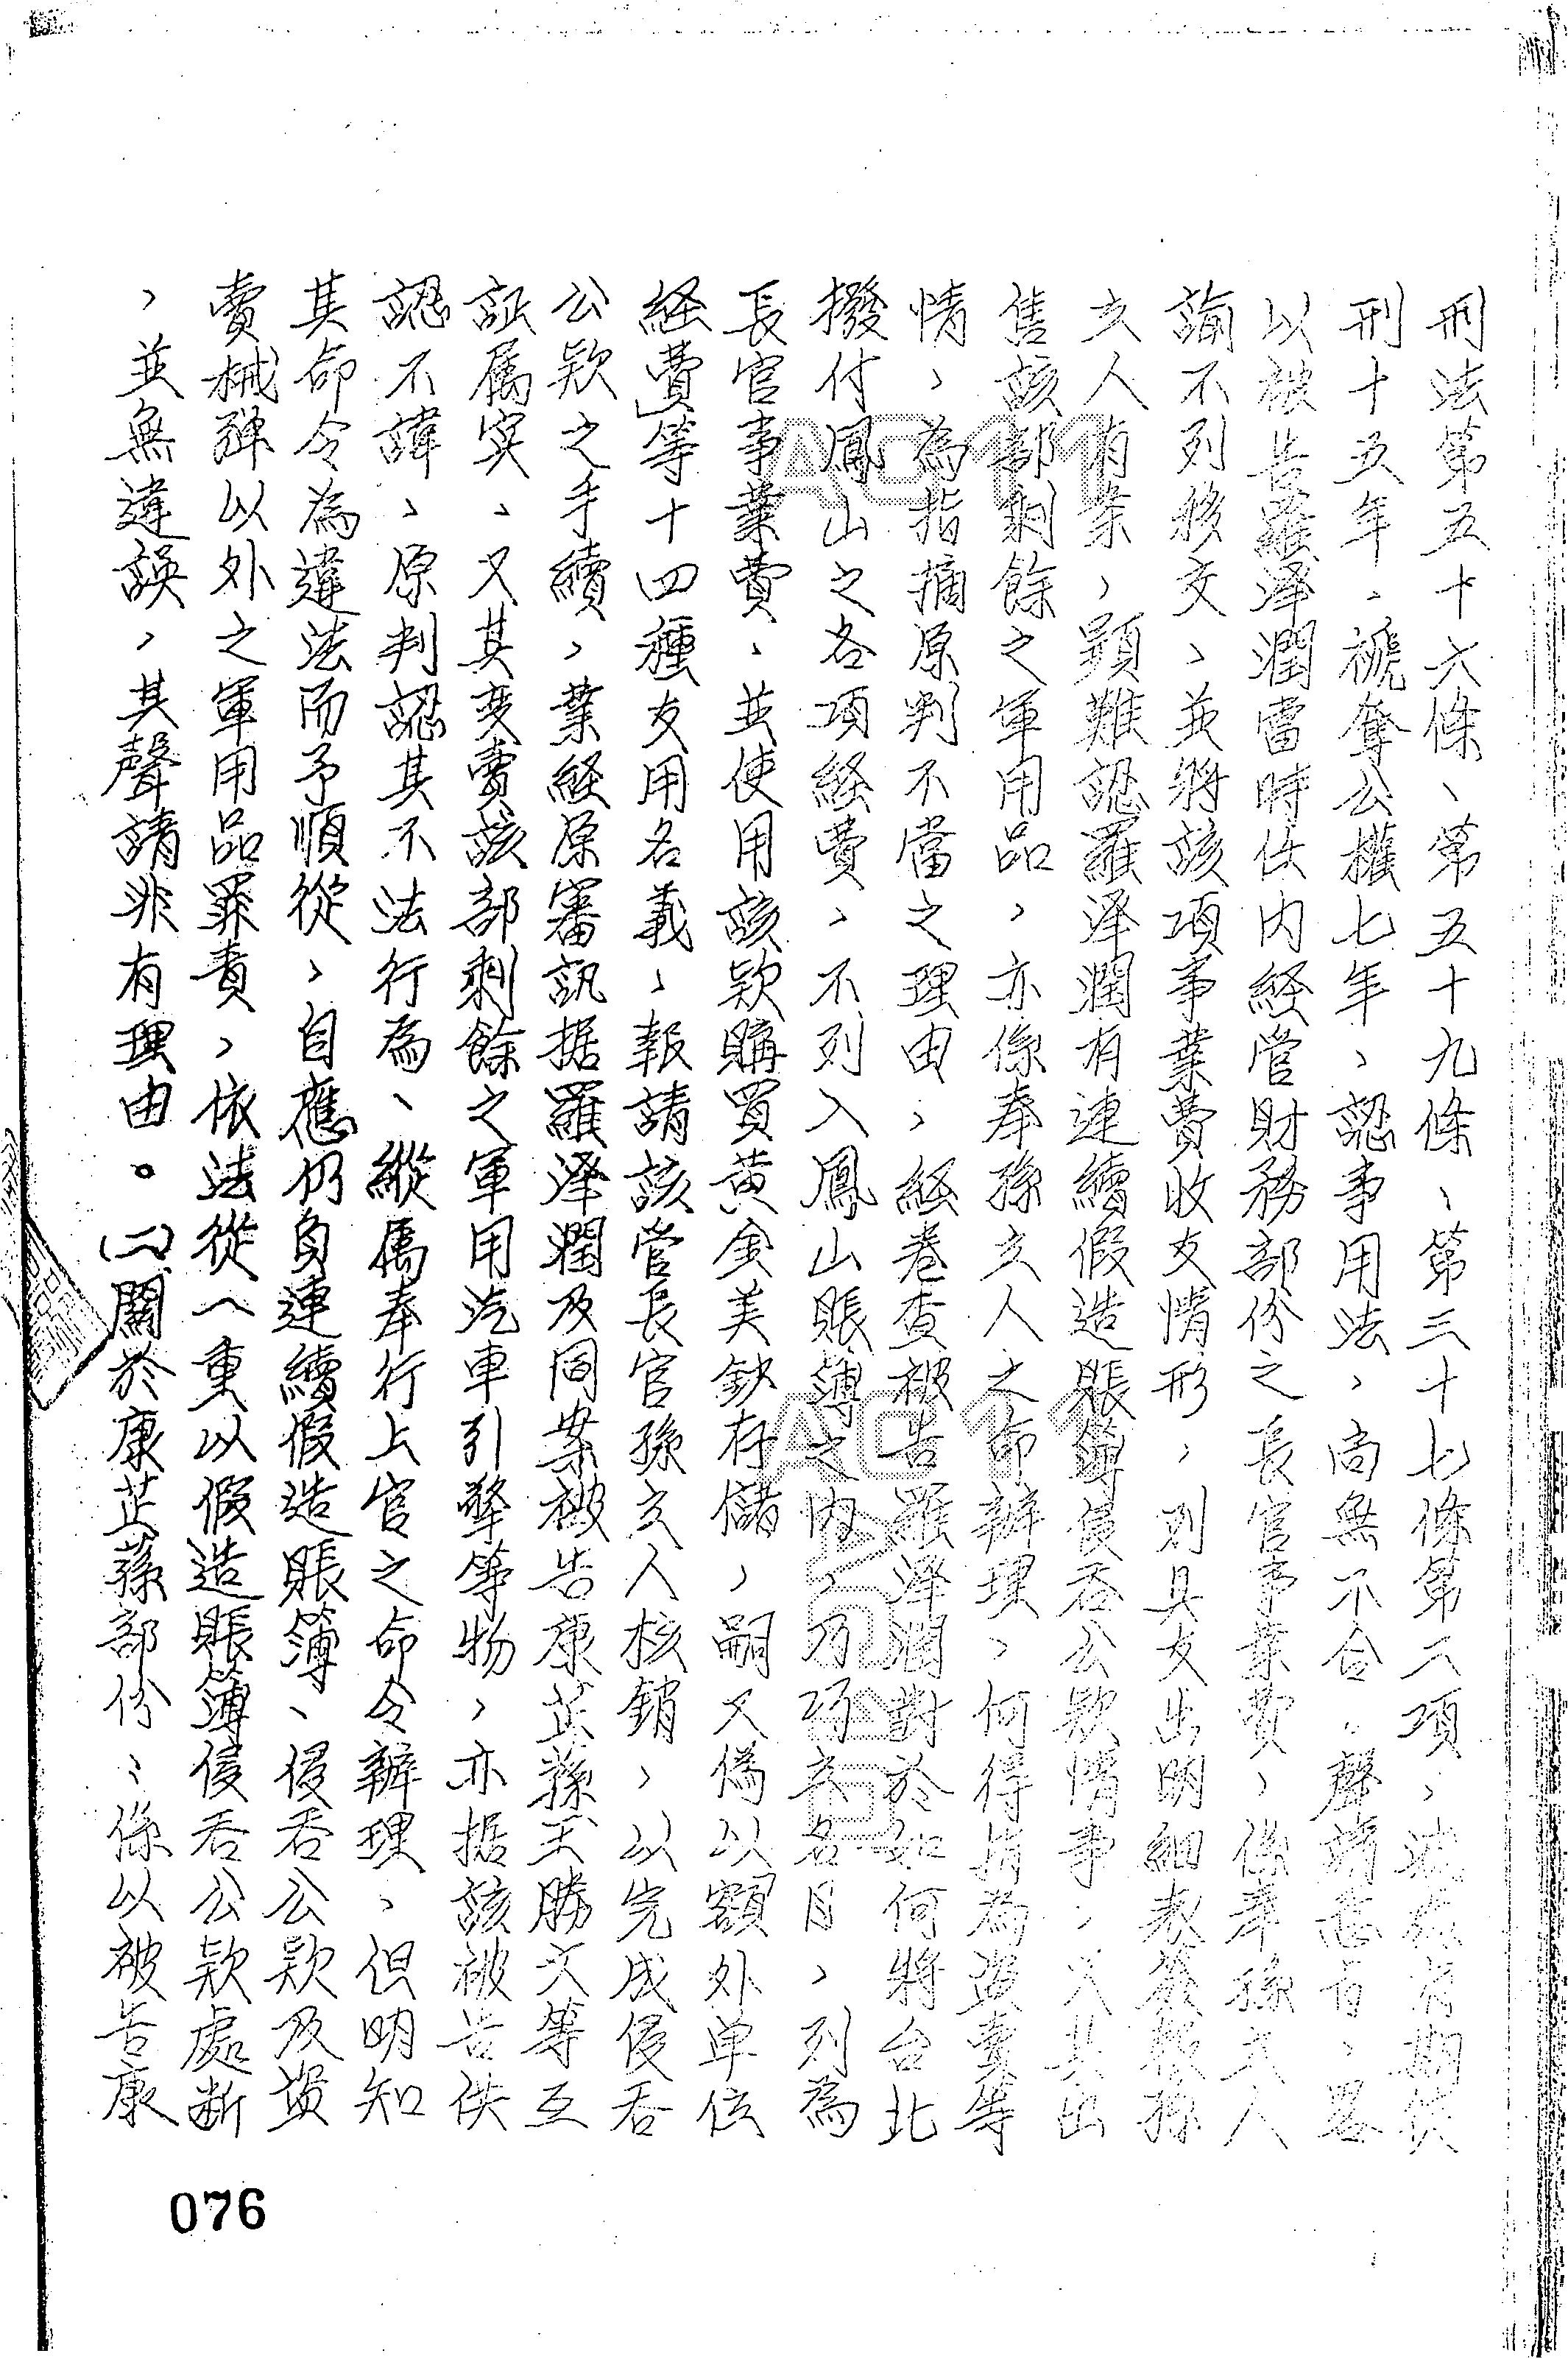 刑法第五十六條、第五十九條、第三十七條第二項、減處有期徒
刑十五年、褫奪公權七年、認事用法、尚無不合。聲請意旨、畧
以被告羅澤潤當時仅内経管財務部份之長官事業費、係奉孫立人
諭不列移交、並將該項事業費收支情形、列具支出明細表簽報孫
立人有案，顯難認羅澤潤有連續假造賬簿侵吞公款情事、又其出
售該部剩餘之軍用品，亦係奉孫立人之命辦理、何得指為盜賣等
情、為指摘原判不當之理由，経卷查被告羅澤潤對於如何將台北
撥付鳳山之各項経費、不列入鳳山賬簿之内，乃巧立名目、列為
長官事業費、並使用該款購買黄金美鈔存儲，嗣又偽以「額外单位
経費」等十四種支用名義、報請該管長官孫立人核銷，以完成侵吞
公款之手續，業経原審訊据羅澤潤及同案被告康芷蓀王勝文等互
証属実、又其变賣該部剩餘之軍用汽車引擎等物，亦据該被告供
認不諱、原判認其不法行為、縱属奉行上官之命令辦理、但明知
其命令為違法而予順從、自應仍負連續假造賬簿、侵吞公款及盜
賣械弹以外之軍用品罪責，依法從一重以假造賬簿侵吞公款處断
，並無違誤，其聲請非有理由。(二)關於康芷蓀部份、係以被告康
076